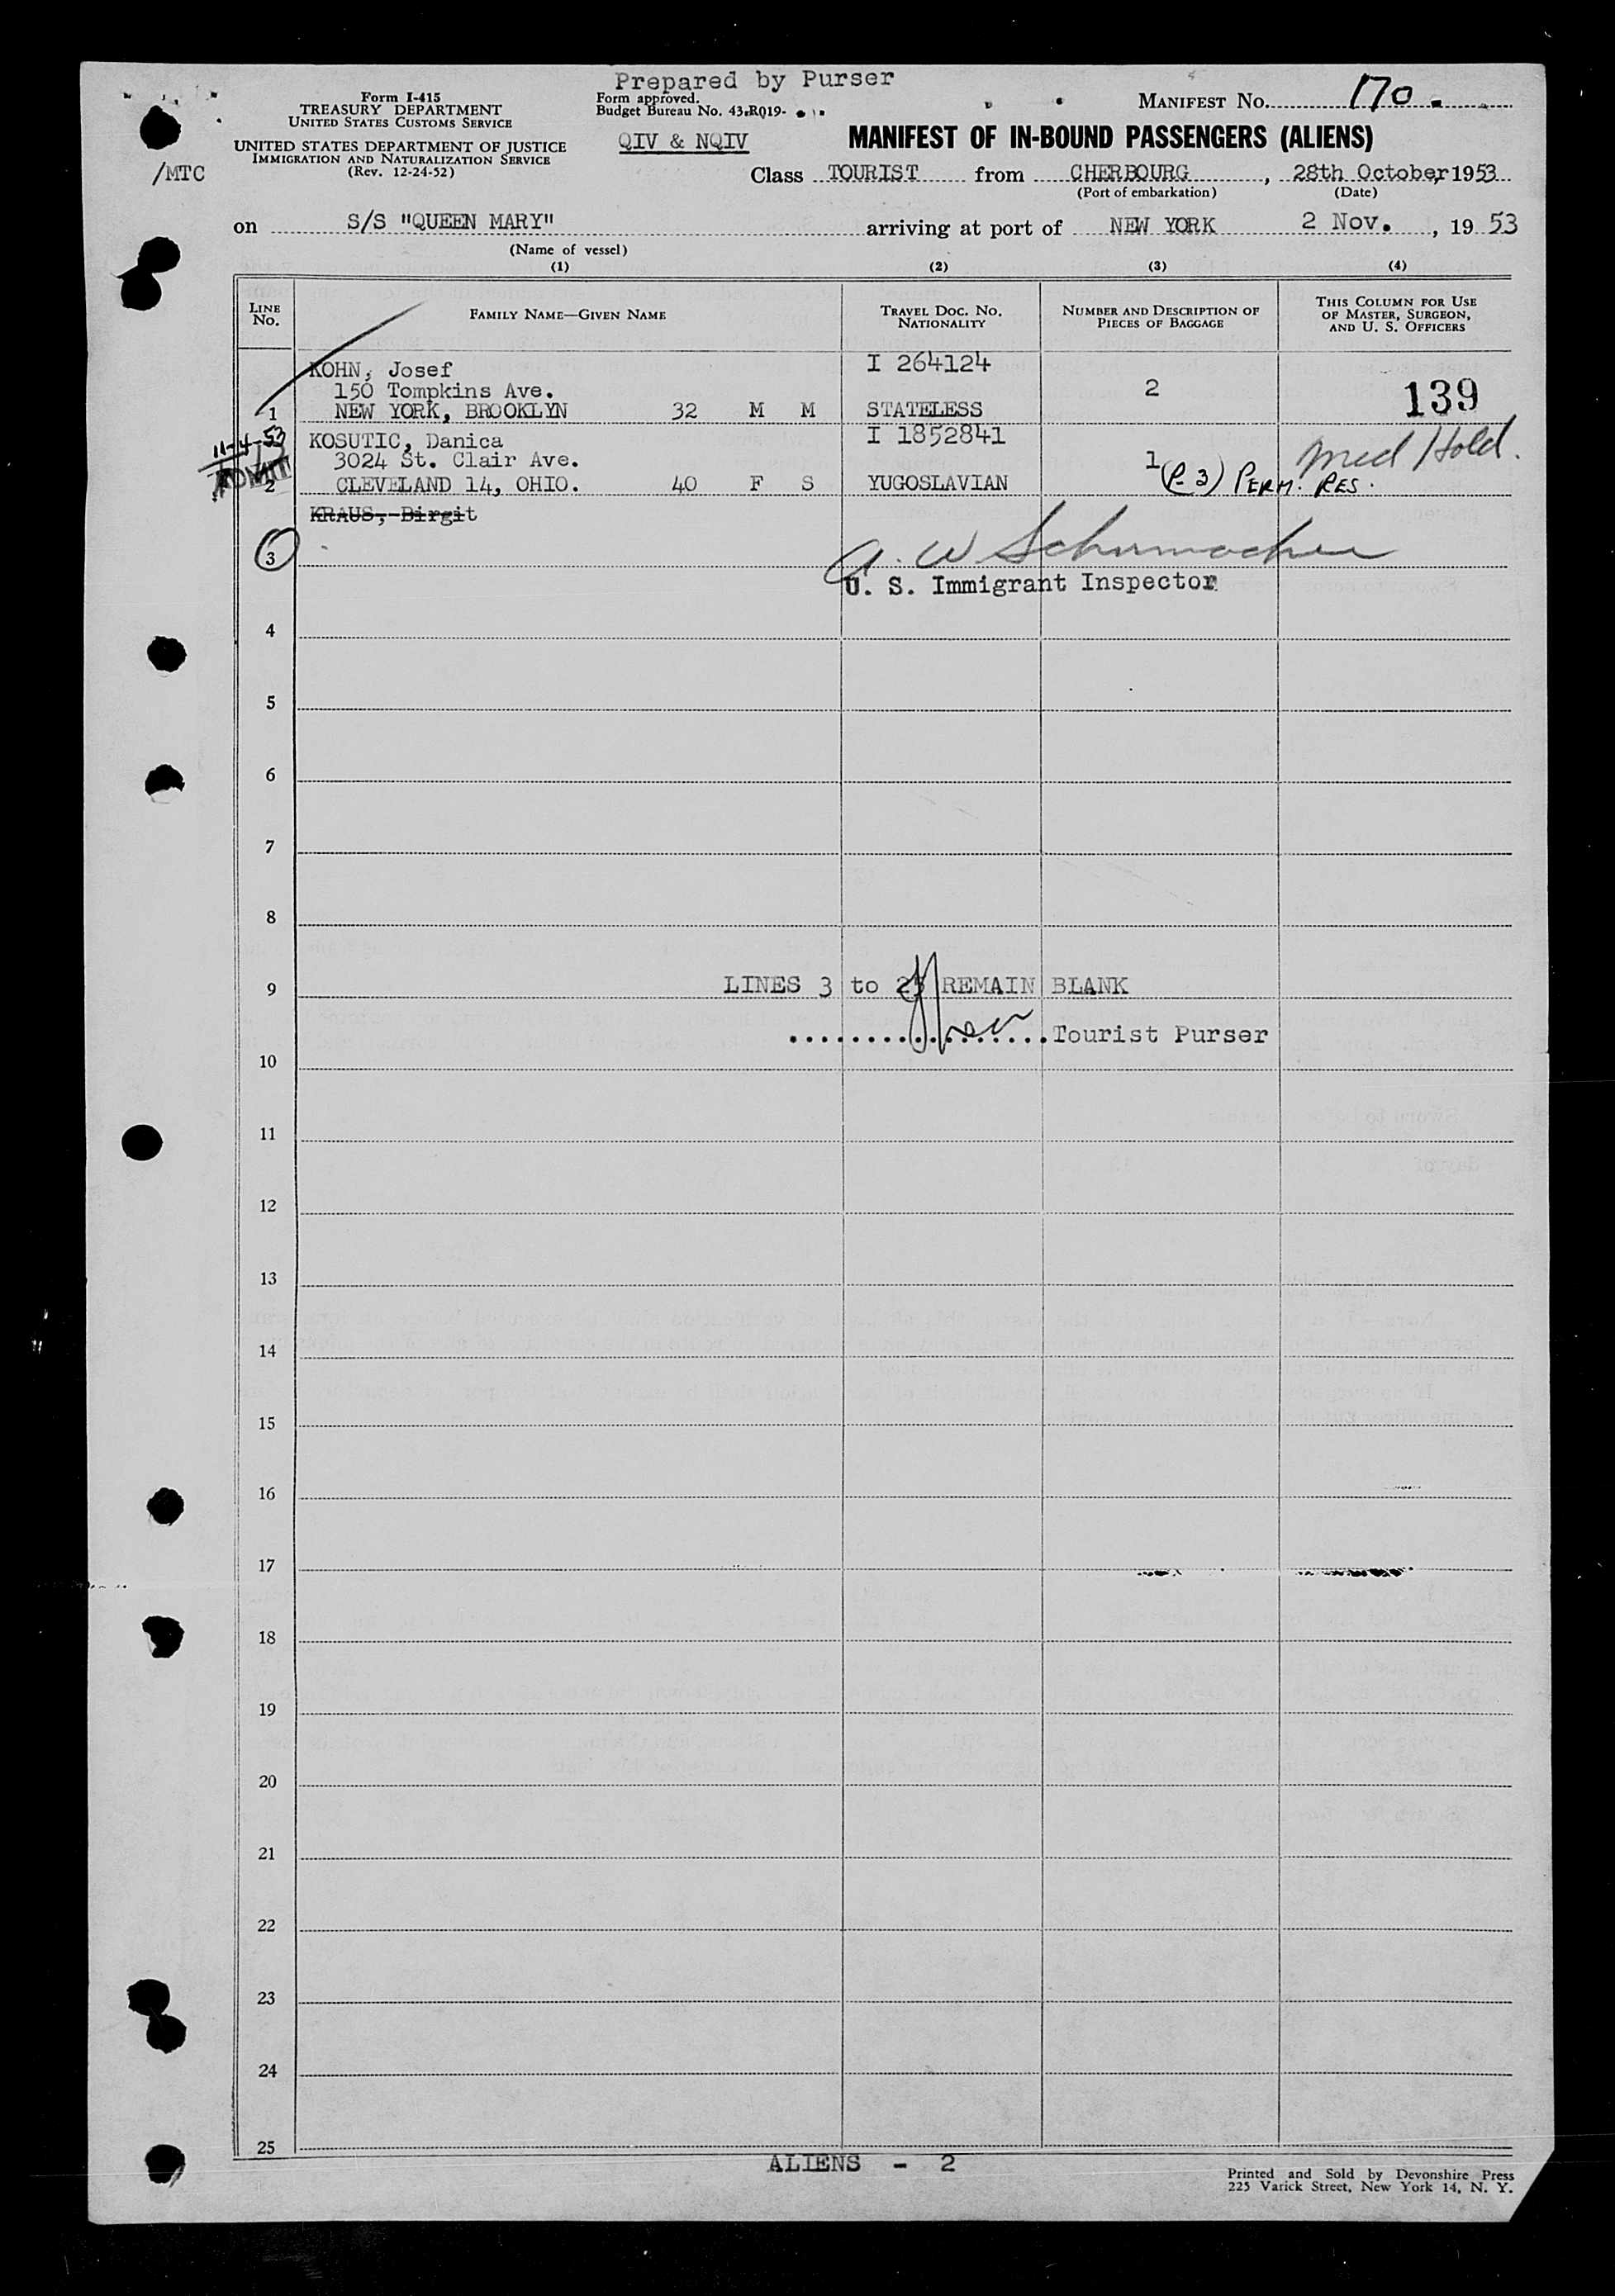 Prepared by Purser
Form I-415
TREASURY DEPARTMENT
UNITED STATES CUSTOMS SERVICE
UNITED STATES DEPARTMENT OF JUSTICE
IMMIGRATION AND NATURALIZATION SERVICE
(Rev. 12-24-52)
/MTC
Form approved.
Budget Bureau No. 43-R019-
QIV & NQIV
MANIFEST No. 170.
MANIFEST OF IN-BOUND PASSENGERS (ALIENS)
Class TOURIST from CHERBOURG, 28th October, 1953
(Port of embarkation) (Date)
on S/S "QUEEN MARY" arriving at port of NEW YORK 2 Nov., 1953
(Name of vessel)
(1) (2) (3) (4)
LINE No. FAMILY NAME—GIVEN NAME TRAVEL DOC. No. NATIONALITY NUMBER AND DESCRIPTION OF PIECES OF BAGGAGE THIS COLUMN FOR USE OF MASTER, SURGEON, AND U. S. OFFICERS
KOHN, Josef I 264124
150 Tompkins Ave. 2 139
1 NEW YORK, BROOKLYN 32 M M STATELESS
11-4-53 KOSUTIC, Danica I 1852841
3024 St. Clair Ave. 1 Med Hold.
ADMIT
2 CLEVELAND 14, OHIO. 40 F S YUGOSLAVIAN (P-3) PERM. RES.
KRAUS, Birgit
3 A. W Schumacher
U. S. Immigrant Inspector
4
5
6
7
8
9 LINES 3 to 25 REMAIN BLANK
Tourist Purser
10
11
12
13
14
15
16
17
18
19
20
21
22
23
24
25
ALIENS - 2
Printed and Sold by Devonshire Press
225 Varick Street, New York 14, N. Y.